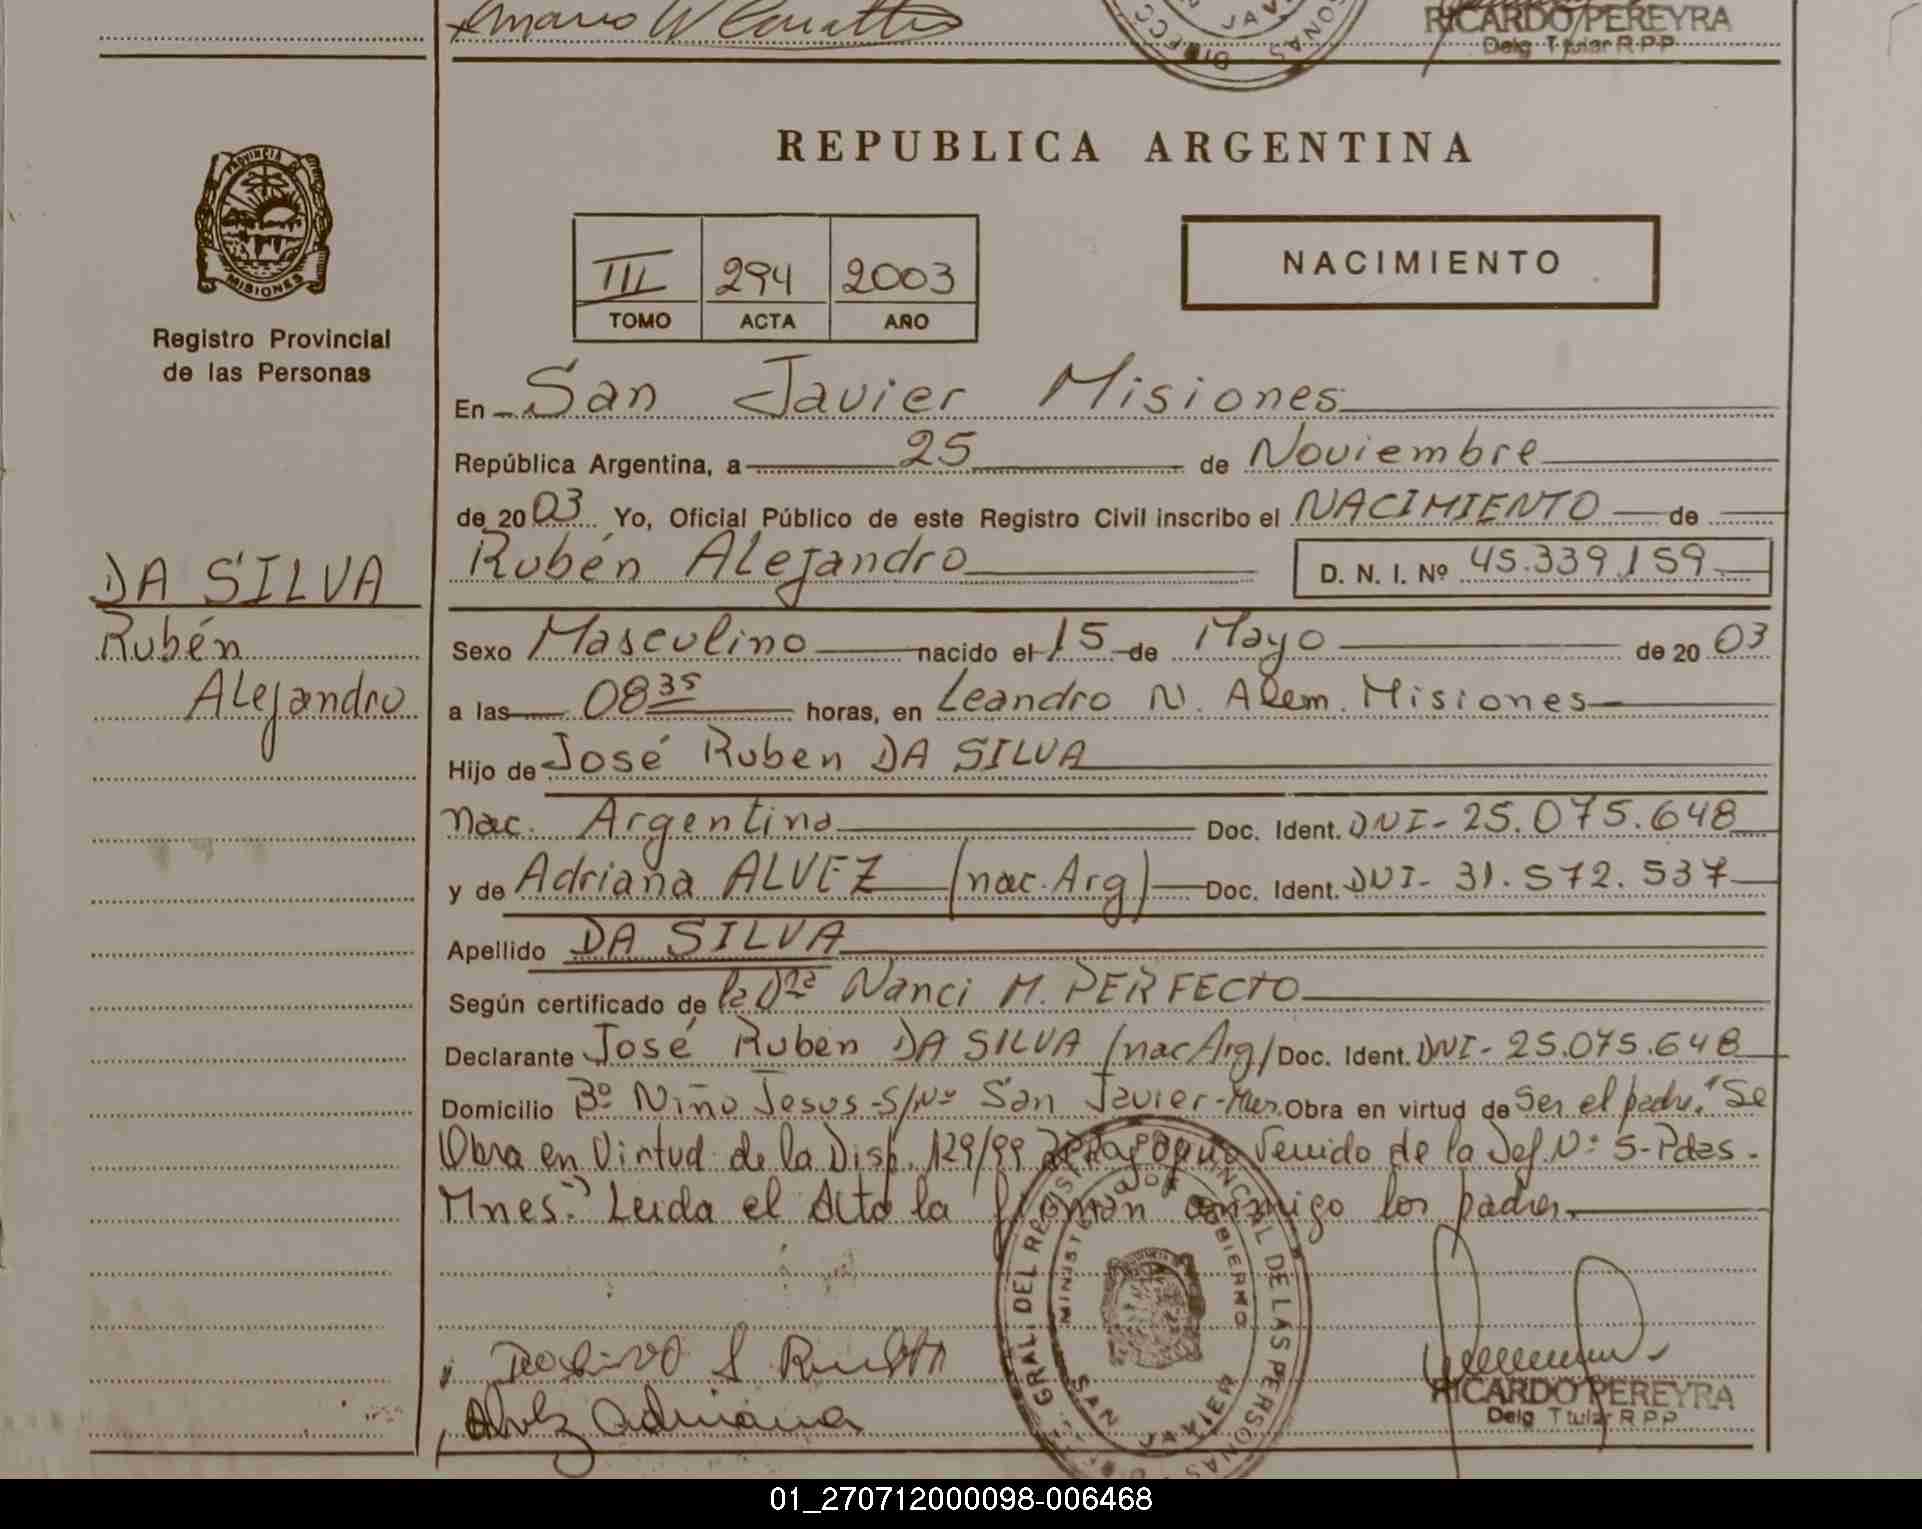 RICARDO PEREYRA
Delg. Titular R P P
REPUBLICA ARGENTINA
PROVINCIA DE
MISIONES
Registro Provincial
de las Personas
III 294 2003
TOMO ACTA AÑO
NACIMIENTO
En San Javier Misiones
República Argentina, a 25 de Noviembre
de 2003 Yo, Oficial Público de este Registro Civil inscribo el NACIMIENTO de
Rubén Alejandro D. N. I. Nº 45.339.159
DA SILVA
Rubén
Alejandro
Sexo Masculino nacido el 15 de Mayo de 2003
a las 08 35 horas, en Leandro N. Alem. Misiones
Hijo de José Ruben DA SILVA
nac. Argentina Doc. Ident. DNI- 25.075.648
y de Adriana ALVEZ (nac. Arg) Doc. Ident. DNI- 31.572.537
Apellido DA SILVA
Según certificado de la Dra Nanci M. PERFECTO
Declarante José Ruben DA SILVA (nac Arg) Doc. Ident. DNI- 25.075.648
Domicilio Bº Niño Jesus-S/Nº San Javier-Mnes. Obra en virtud de ser el padre. "Se
Obra en Virtud de la Disp. 129/99 venido de la Def. Nº 5-Pdas-
Mnes." Leida el Acta la firman conmigo los padres.
Alvez Adriana
GRAL. DEL REGISTRO PROVINCIAL DE LAS PERSONAS
MINISTERIO DE GOBIERNO
SAN JAVIER
RICARDO PEREYRA
Delg. Titular R P P
01_270712000098-006468